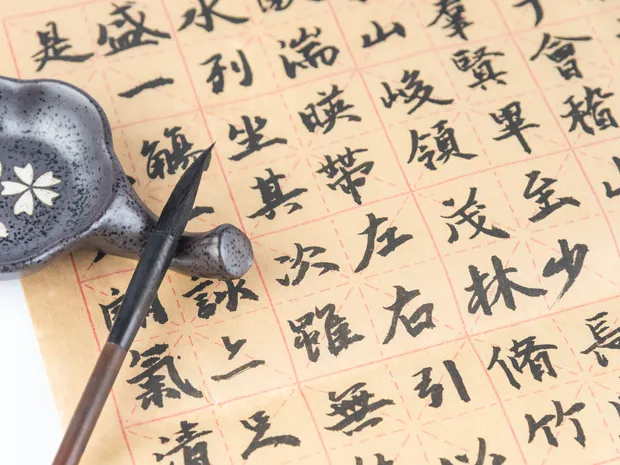 會稽山
群賢畢至少長
山峻領茂林脩竹
湍暎帶左右引
水列坐其次雖無
盛一觴一詠亦足
是朗氣清